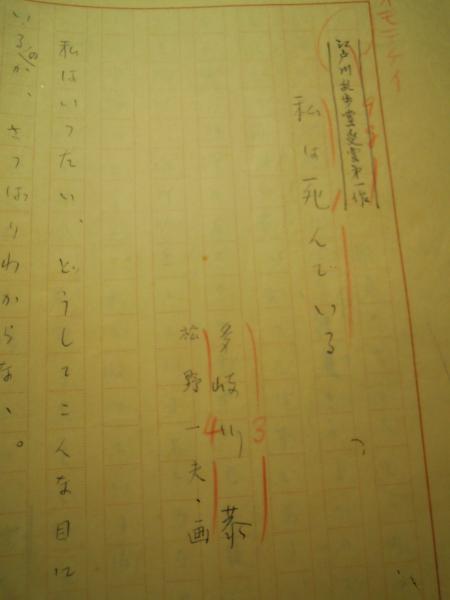 オモテケイ
江戸川乱歩賞受賞第一作
私は死んでいる
多岐川 恭
3
松野一夫・画
4
私はいったい、どうしてこんな目に
いるのか、さっぱりわからない。